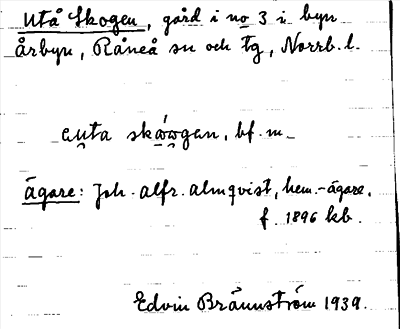 Utå Skogen, gård i no 3 i byn
Årbyn, Råneå sn och tg, Norrb. l.
skógan, bf. m.
Ägare: Joh. Alfr. Almqvist, hem.-ägare,
f. 1896 kb.
Edvin Brännström 1939.